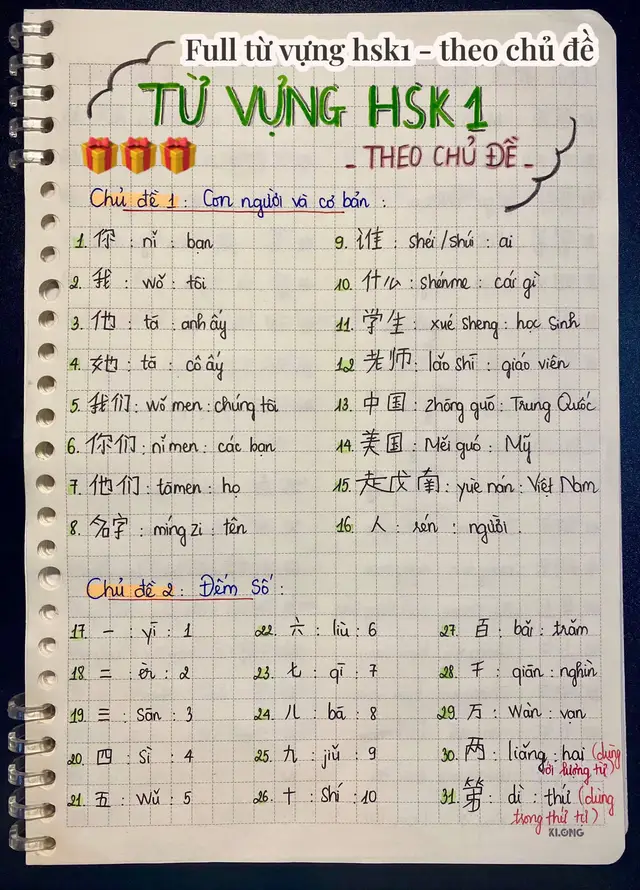 Full từ vựng hsk1 - theo chủ đề
TỪ VỰNG HSK 1
- THEO CHỦ ĐỀ -
Chủ đề 1 : Con người và cơ bản :
1. 你 : nǐ : bạn
2. 我 : wǒ : tôi
3. 他 : tā : anh ấy
4. 她 : tā : cô ấy
5. 我们 : wǒ men : chúng tôi
6. 你们 : nǐ men : các bạn
7. 他们 : tāmen : họ
8. 名字 : míng zi : tên
9. 谁 : shéi /shúi : ai
10. 什么 : shénme : cái gì
11. 学生 : xué sheng : học sinh
12 老师 : lǎo shī : giáo viên
13. 中国 : zhōng guó : Trung Quốc
14. 美国 : Měi guó : Mỹ
15. 越南 : yuè nán : Việt Nam
16. 人 : rén : người .
Chủ đề 2 : Đếm Số :
17. 一 : yī : 1
18. 二 : èr : 2
19. 三 : sān : 3
20. 四 : sì : 4
21. 五 : wǔ : 5
22. 六 : liù : 6
23. 七 : qī : 7
24. 八 : bā : 8
25. 九 : jiǔ : 9
26. 十 : shí : 10
27. 百 : bǎi : trăm
28. 千 : qiān : nghìn
29. 万 : wàn : vạn
30. 两 : liǎng : hai (dùng
với lượng từ)
31. 第 : dì : thứ (dùng
trong thứ tự)
KLONG